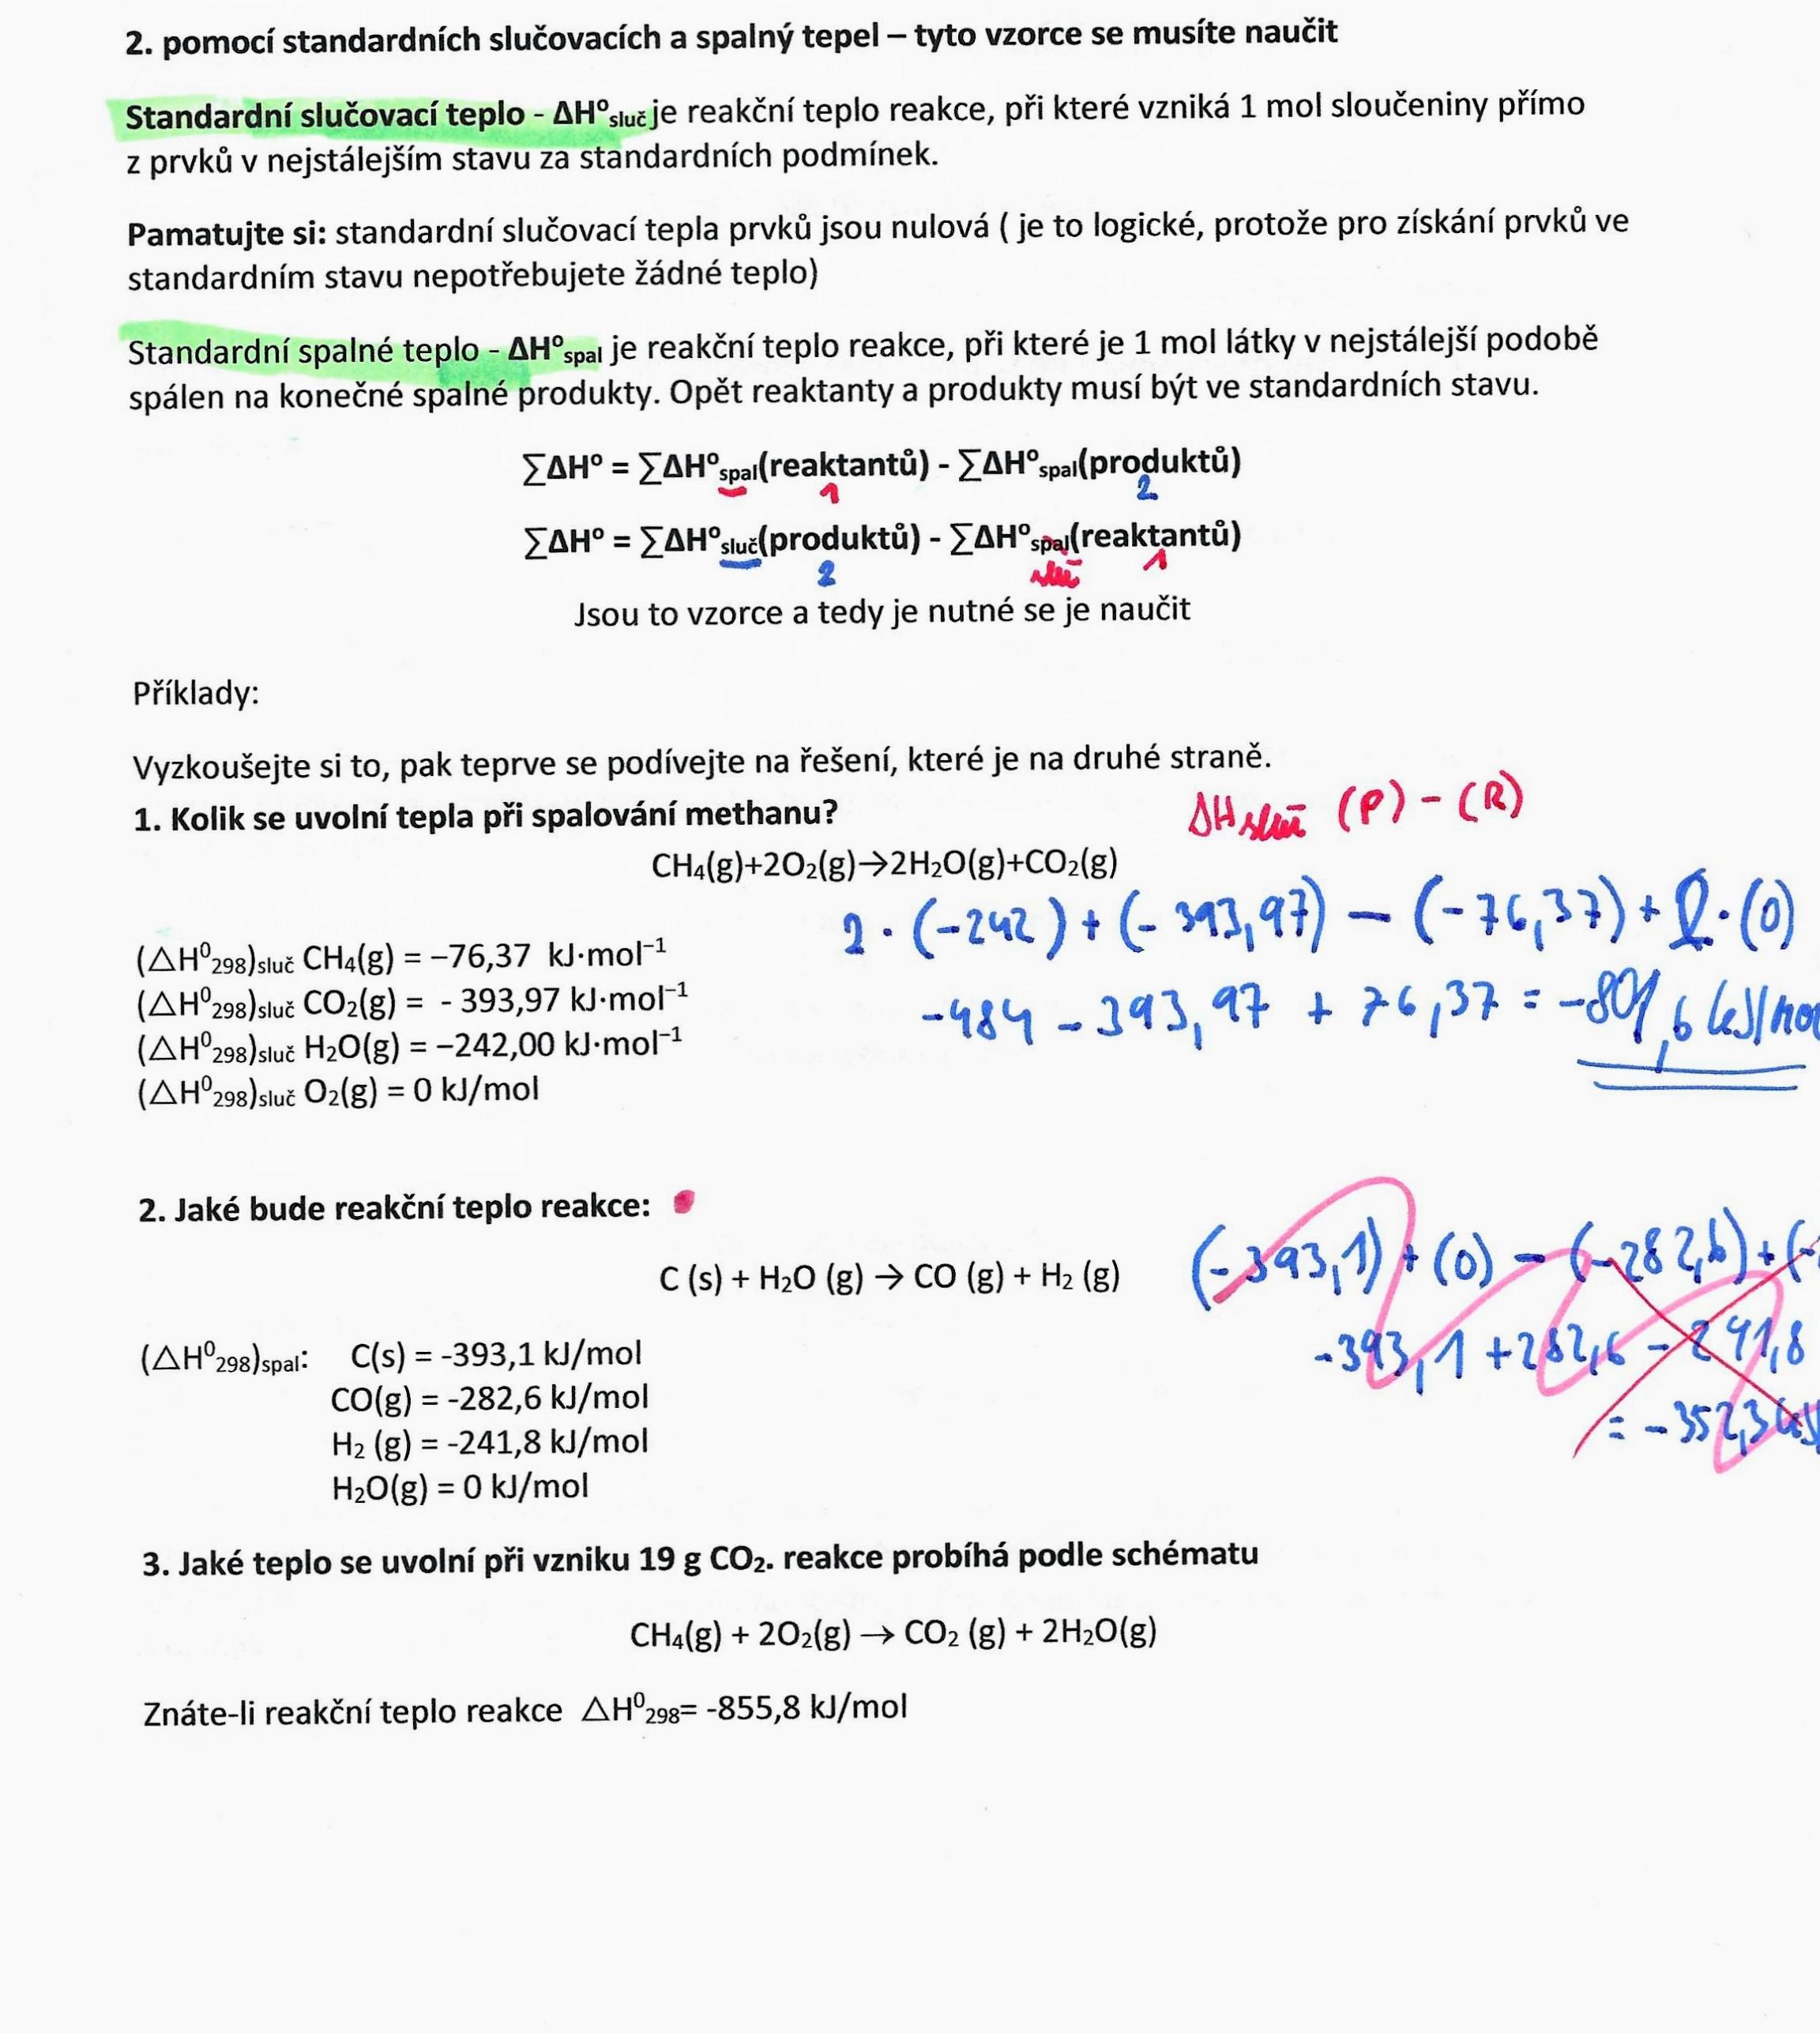 2. pomocí standardních slučovacích a spalný tepel – tyto vzorce se musíte naučit
Standardní slučovací teplo - ΔH°sluč je reakční teplo reakce, při které vzniká 1 mol sloučeniny přímo
z prvků v nejstálejším stavu za standardních podmínek.
Pamatujte si: standardní slučovací tepla prvků jsou nulová ( je to logické, protože pro získání prvků ve
standardním stavu nepotřebujete žádné teplo)
Standardní spalné teplo - ΔH°spal je reakční teplo reakce, při které je 1 mol látky v nejstálejší podobě
spálen na konečné spalné produkty. Opět reaktanty a produkty musí být ve standardních stavu.
∑ΔH° = ∑ΔH°spal(reaktantů) - ∑ΔH°spal(produktů)
1 2
∑ΔH° = ∑ΔH°sluč(produktů) - ∑ΔH°spal(reaktantů)
2 sluč 1
Jsou to vzorce a tedy je nutné se je naučit
Příklady:
Vyzkoušejte si to, pak teprve se podívejte na řešení, které je na druhé straně.
1. Kolik se uvolní tepla při spalování methanu?
ΔH sluč (P) - (R)
CH₄(g)+2O₂(g)→2H₂O(g)+CO₂(g)
2 · (-242) + (- 393,97) - (-76,37) + 2 · (0)
(△H⁰₂₉₈)sluč CH₄(g) = −76,37 kJ·mol⁻¹
(△H⁰₂₉₈)sluč CO₂(g) = - 393,97 kJ·mol⁻¹
-484 - 393,97 + 76,37 = -801,6 kJ/mol
(△H⁰₂₉₈)sluč H₂O(g) = −242,00 kJ·mol⁻¹
(△H⁰₂₉₈)sluč O₂(g) = 0 kJ/mol
2. Jaké bude reakční teplo reakce:
(-393,1) + (0) - (-282,6) + (-
C (s) + H₂O (g) → CO (g) + H₂ (g)
-393,1 + 282,6 - 241,8
(△H⁰₂₉₈)spal: C(s) = -393,1 kJ/mol
CO(g) = -282,6 kJ/mol
= -352,3 kJ
H₂ (g) = -241,8 kJ/mol
H₂O(g) = 0 kJ/mol
3. Jaké teplo se uvolní při vzniku 19 g CO₂. reakce probíhá podle schématu
CH₄(g) + 2O₂(g) → CO₂ (g) + 2H₂O(g)
Znáte-li reakční teplo reakce △H⁰₂₉₈= -855,8 kJ/mol